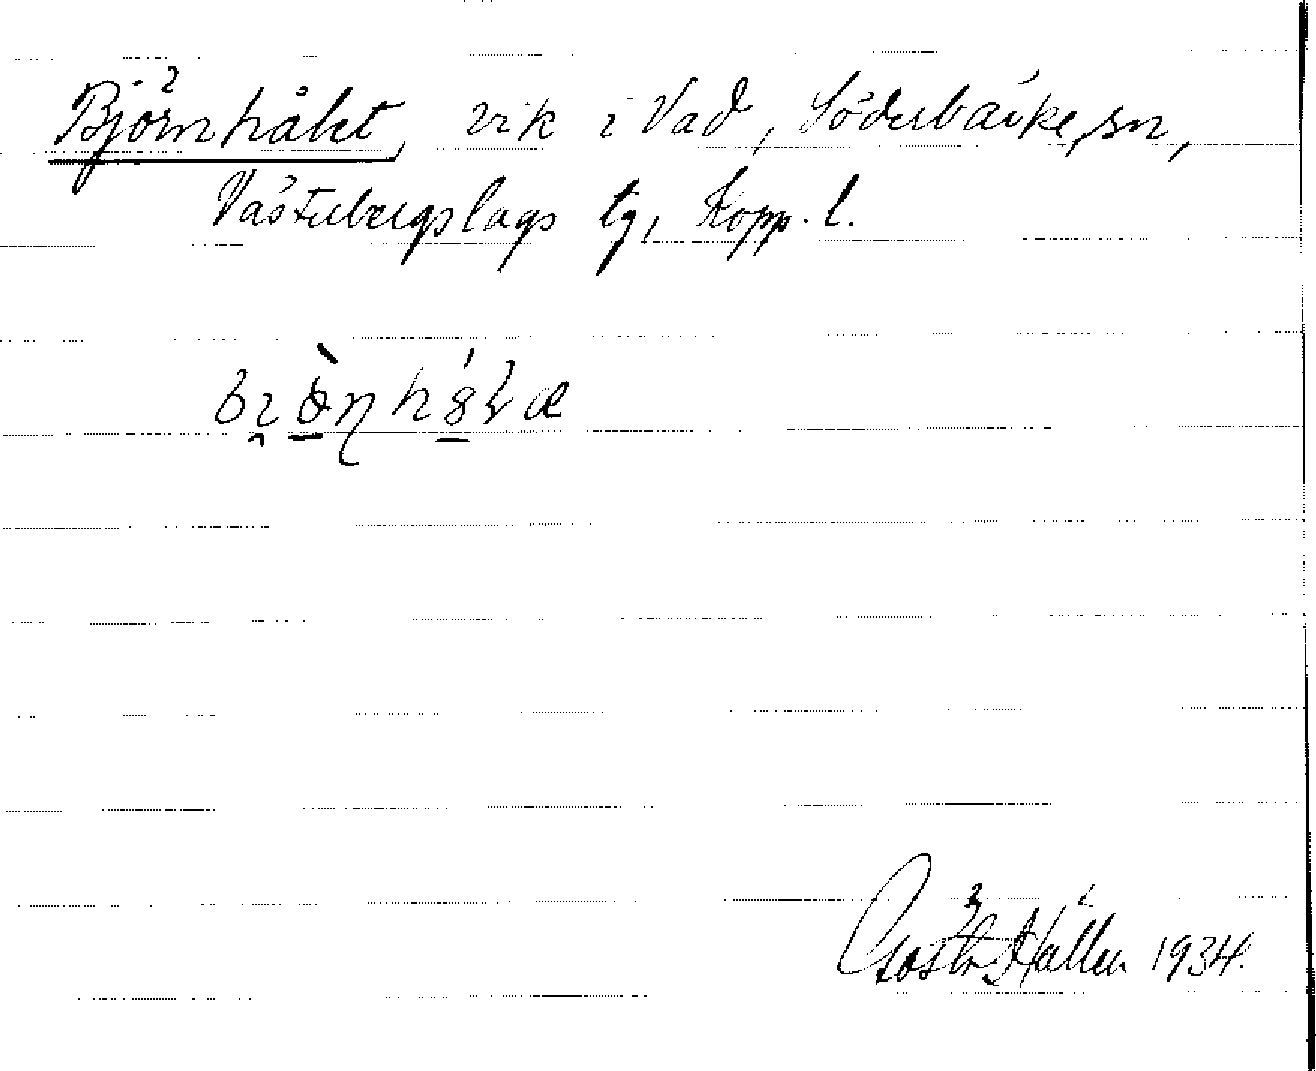 Björnhålet, vik i Vad, Söderbärke sn,
Västerbergslags tg, Kopp. l.
Gösta Hallén 1934.